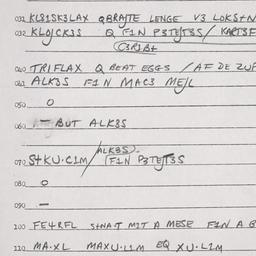 031 KL81SK3LAX QBRATTE LENGE V3 LOKS+N
032 KLOJCK3S Q F1N P3TETSS/ KART3F
C3R1B+
040 TRIFLAX Q BEAT EGGS / AF DE ZUF
041 ALK3S F1N MAC3 MEJL
050 O
060 — BUT ALK8S
ALK8S).
070 S+KU·C1M/ F1N P3TETSS
080 O
090 —
100 FE4RFL S+NA·T MIT A MESE F1N A B
110 MA·XL MAXU·L1M EQ XU·L1M